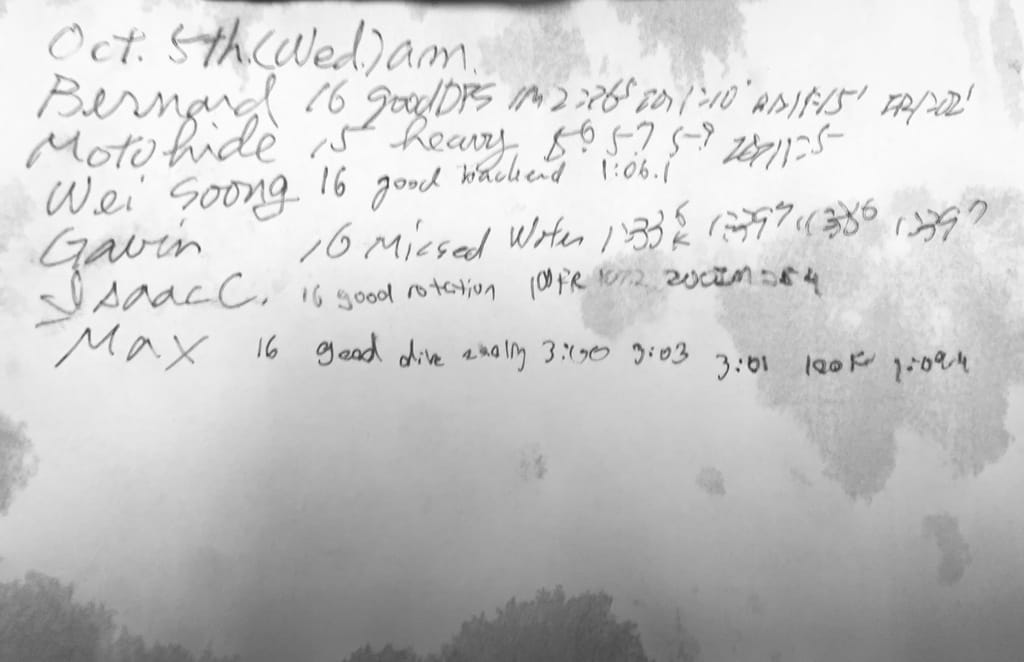 Oct. 5th.(Wed.)am.
Bernard 16 good DPS IM 2:26⁵ 1:10
Motohide 15 heavy 5⁶ 5-7 5-9
Wei Soong 16 good backend 1:06.1
Gavin 16 Missed Water 1:33⁵ 1:39⁷ 1:38⁶ 1:39⁷
Isaac C. 16 good rotation 100FR
Max 16 good dive 3:00 3:03 3:01 100K 1:09.4